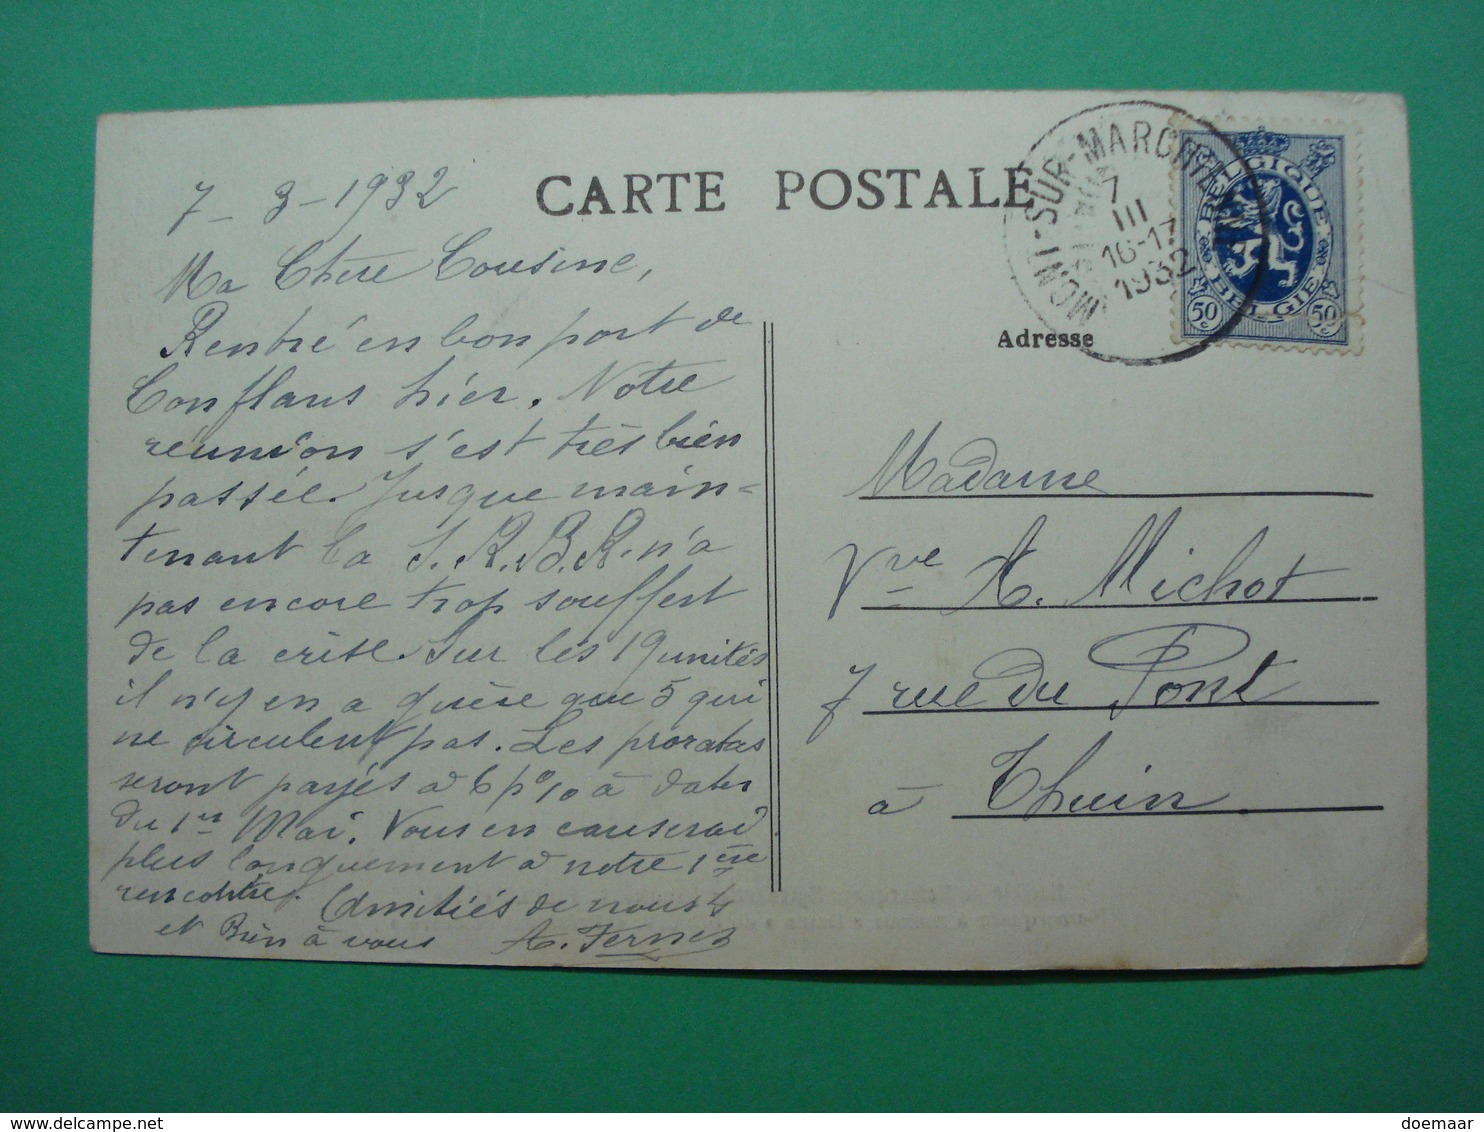 CARTE POSTALE
7 - 3 - 1932
Ma Chère Cousine,
Rentré en bon port de
Conflans hier. Notre
réunion s'est très bien
passée. Jusque main-
tenant la S.R.B.R. n'a
pas encore trop souffert
de la crise. Sur les 19 unités
il n'y en a guère que 5 qui
ne circulent pas. Les proratas
seront payés à 6 p% à dater
du 1er Mai. Vous en causerai
plus longuement à notre 1ère
rencontre. Amitiés de nous 4
et Bien à vous A.
MONT-SUR-MARCHIENNE
7
III
16-17
1932
BELGIQUE
BELGIE
50 c
50 c
Adresse
Madame
Vve A. Michot
7 rue du Pont
à Thuin
doemaar